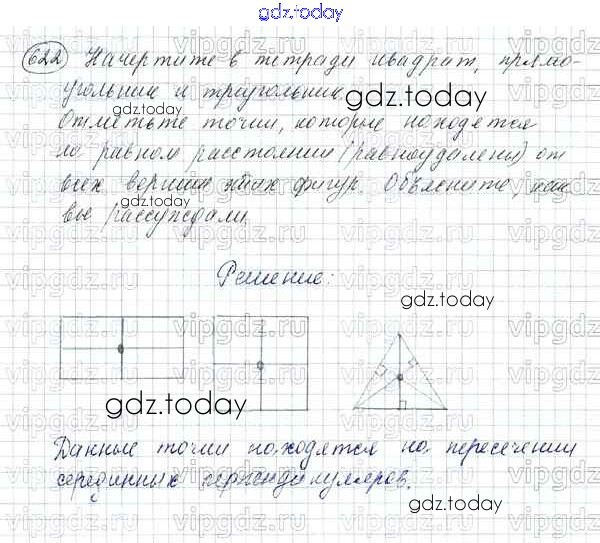 gdz.today
622 Начертите в тетради квадрат, прямо-
угольник и треугольник
gdz.today
Отметьте точки, которые находятся
на равном расстоянии (равноудалены) от
всех вершин этих фигур. Объясните, как
вы рассуждали.
gdz.today
Решение:
gdz.today
gdz.today
Данные точки находятся на пересечении
серединных перпендикуляров.
gdz.today